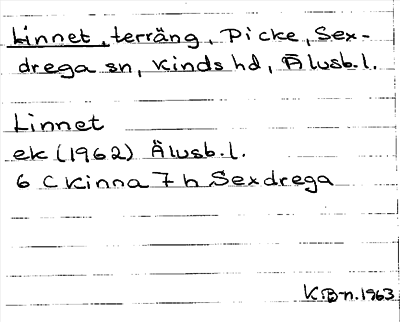 Linnet, terräng, Picke, Sex-
drega sn, Kinds hd, Älvsb. l.
Linnet
ek (1962) Älvsb. l.
6 C Kinna 7 h Sexdrega
K.B-n. 1963